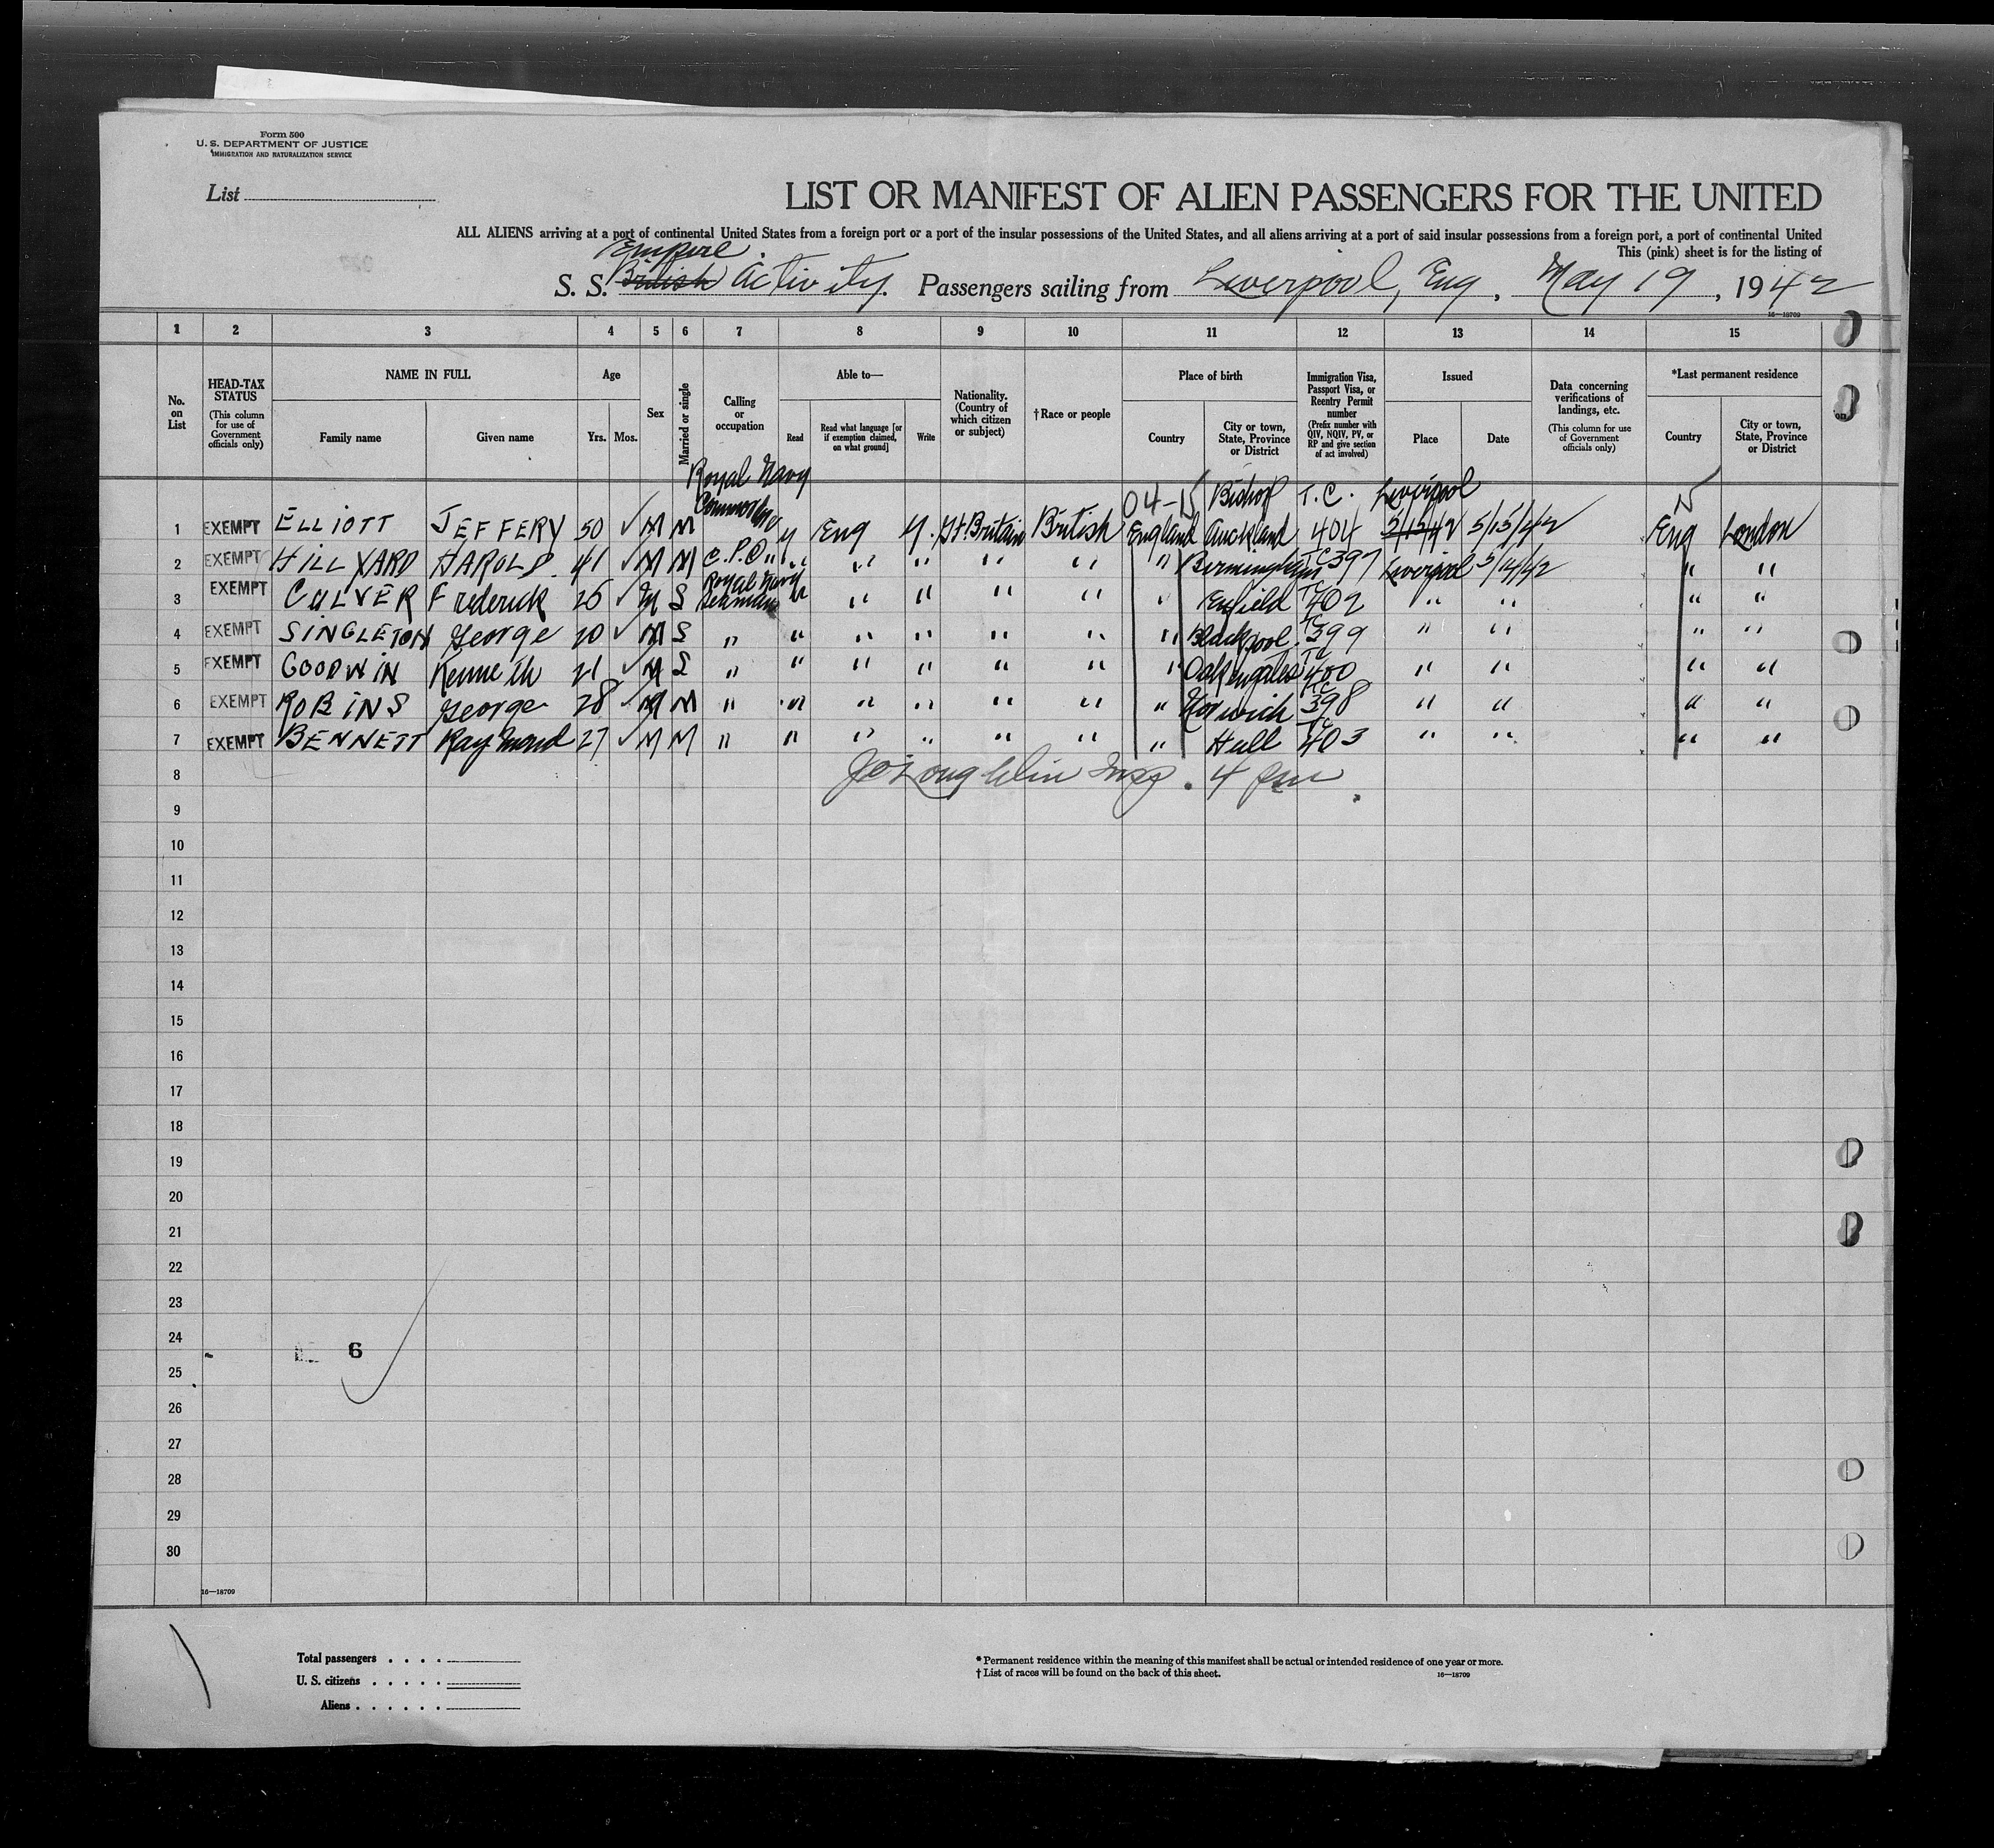 Form 500
U. S. DEPARTMENT OF JUSTICE
IMMIGRATION AND NATURALIZATION SERVICE
List
LIST OR MANIFEST OF ALIEN PASSENGERS FOR THE UNITED
ALL ALIENS arriving at a port of continental United States from a foreign port or a port of the insular possessions of the United States, and all aliens arriving at a port of said insular possessions from a foreign port, a port of continental United
This (pink) sheet is for the listing of
Empire
S. S. British Activity. Passengers sailing from Liverpool, Eng, May 19, 1942
16—18709
1 2 3 4 5 6 7 8 9 10 11 12 13 14 15
No. on List
HEAD-TAX STATUS (This column for use of Government officials only)
NAME IN FULL
Family name Given name
Age
Yrs. Mos.
Sex
Married or single
Calling or occupation
Able to—
Read Read what language [or if exemption claimed, on what ground] Write
Nationality. (Country of which citizen or subject)
†Race or people
Place of birth
Country City or town, State, Province or District
Immigration Visa, Passport Visa, or Reentry Permit number (Prefix number with QIV, NQIV, PV, or RP and give section of act involved)
Issued
Place Date
Data concerning verifications of landings, etc. (This column for use of Government officials only)
*Last permanent residence
Country City or town, State, Province or District
Royal Navy
Commodore 04-15 Bishop T.C. Liverpool
1 EXEMPT ELLIOTT JEFFERY 50 M M y Eng y. Gt. Britain British England Auckland 404 5/15/42 5/15/42 Eng London
2 EXEMPT HILLYARD HAROLD 41 M M C.P.O " " " " " " " Birmingham TC 397 Liverpool 5/14/42 " "
Royal Navy
3 EXEMPT CULVER Frederick 26 M S Seaman " " " " " " Enfield TC 402 " " " "
4 EXEMPT SINGLETON George 20 M S " " " " " " " Blackpool TC 399 " " " "
5 EXEMPT GOODWIN Kenneth 21 M S " " " " " " " Oakengates TC 400 " " " "
6 EXEMPT ROBINS George 28 M M " " " " " " " Norwich TC 398 " " " "
7 EXEMPT BENNETT Raymond 27 M M " " " " " " " Hull TC 403 " " " "
8 J O'Loughlin Insp. 4 pm
9
10
11
12
13
14
15
16
17
18
19
20
21
22
23
24
6
25
26
27
28
29
30
16—18709
Total passengers . . . .
U. S. citizens . . . . .
Aliens . . . . . .
* Permanent residence within the meaning of this manifest shall be actual or intended residence of one year or more.
† List of races will be found on the back of this sheet.
16—18709